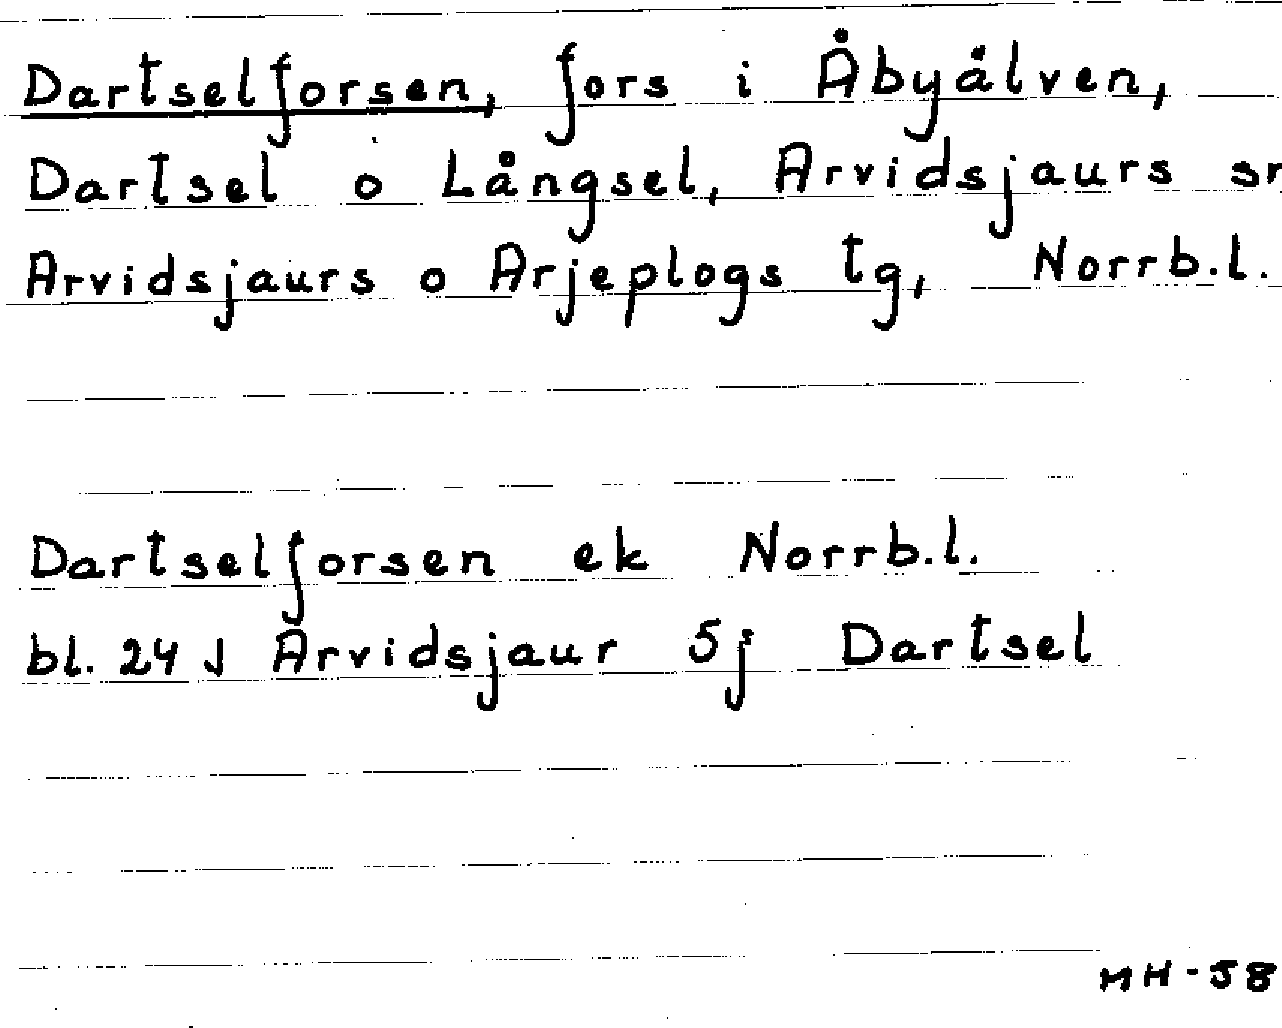 Dartselforsen, fors i Åbyälven,
Dartsel o Långsel, Arvidsjaurs sn
Arvidsjaurs o Arjeplogs tg, Norrb.l.
Dartselforsen ek Norrb.l.
bl. 24 J Arvidsjaur 5j Dartsel
MH-58